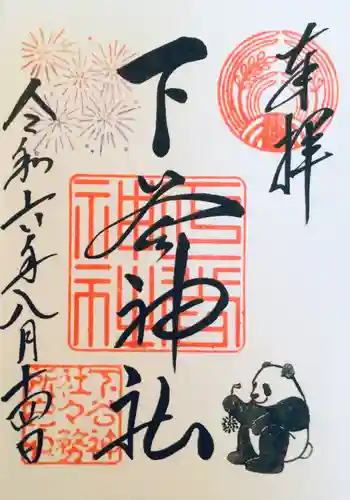 奉拝
下谷神社
令和六年八月十四日
下谷神社